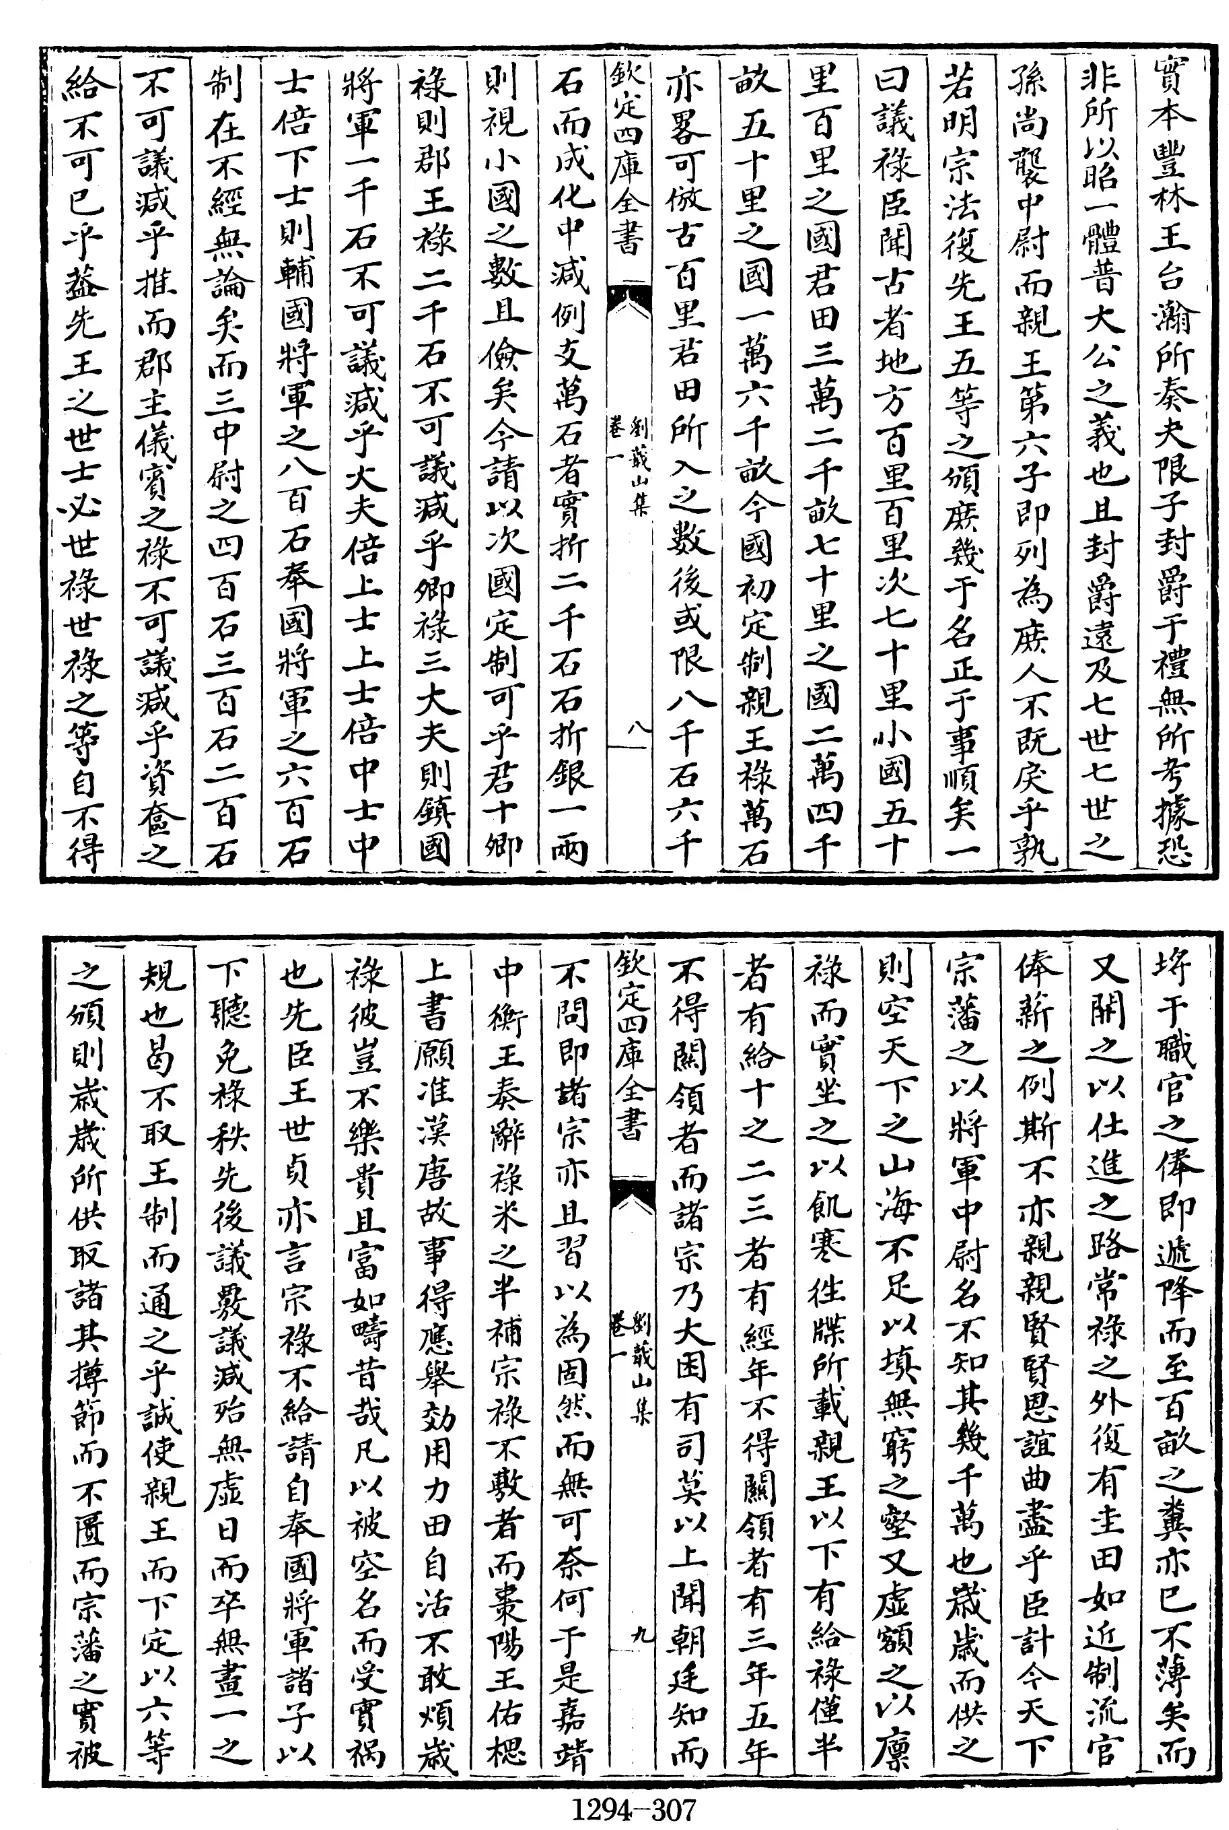 實本豐林王台瀚所奏夫限子封爵于禮無所考據恐
非所以昭一體普大公之義也且封爵遠及七世七世之
孫尚襲中尉而親王第六子即列為庶人不既戾乎孰
若明宗法復先王五等之頒庶幾于名正于事順矣一
曰議祿臣聞古者地方百里百里次七十里小國五十
里百里之國君田三萬二千畝七十里之國二萬四千
畝五十里之國一萬六千畝今國初定制親王祿萬石
亦畧可倣古百里君田所入之數後或限八千石六千
欽定四庫全書
劉蕺山集
卷一
八
石而成化中減例支萬石者實折二千石石折銀一兩
則視小國之數且儉矣今請以次國定制可乎君十卿
祿則郡王祿二千石不可議減乎卿祿三大夫則鎮國
將軍一千石不可議減乎大夫倍上士上士倍中士中
士倍下士則輔國將軍之八百石奉國將軍之六百石
制在不經無論矣而三中尉之四百石三百石二百石
不可議減乎推而郡主儀賓之祿不可議減乎資奩之
給不可已乎葢先王之世士必世祿世祿之等自不得
埒于職官之俸即遞降而至百畝之糞亦已不薄矣而
又開之以仕進之路常祿之外復有圭田如近制流官
俸薪之例斯不亦親親賢賢恩誼曲盡乎臣計今天下
宗藩之以將軍中尉名不知其幾千萬也歲歲而供之
則空天下之山海不足以填無窮之壑又虛額之以廩
祿而實坐之以飢寒徃牒所載親王以下有給祿僅半
者有給十之二三者有經年不得關領者有三年五年
不得關領者而諸宗乃大困有司莫以上聞朝廷知而
欽定四庫全書
劉蕺山集
卷一
九
不問即諸宗亦且習以為固然而無可奈何于是嘉靖
中衡王奏辭祿米之半補宗祿不敷者而棗陽王佑楒
上書願准漢唐故事得應舉効用力田自活不敢煩歲
祿彼豈不樂貴且富如疇昔哉凡以被空名而受實禍
也先臣王世貞亦言宗祿不給請自奉國將軍諸子以
下聽免祿秩先後議覈議減殆無虛日而卒無畫一之
規也曷不取王制而通之乎誠使親王而下定以六等
之頒則歲歲所供取諸其撙節而不匱而宗藩之實被
1294-307